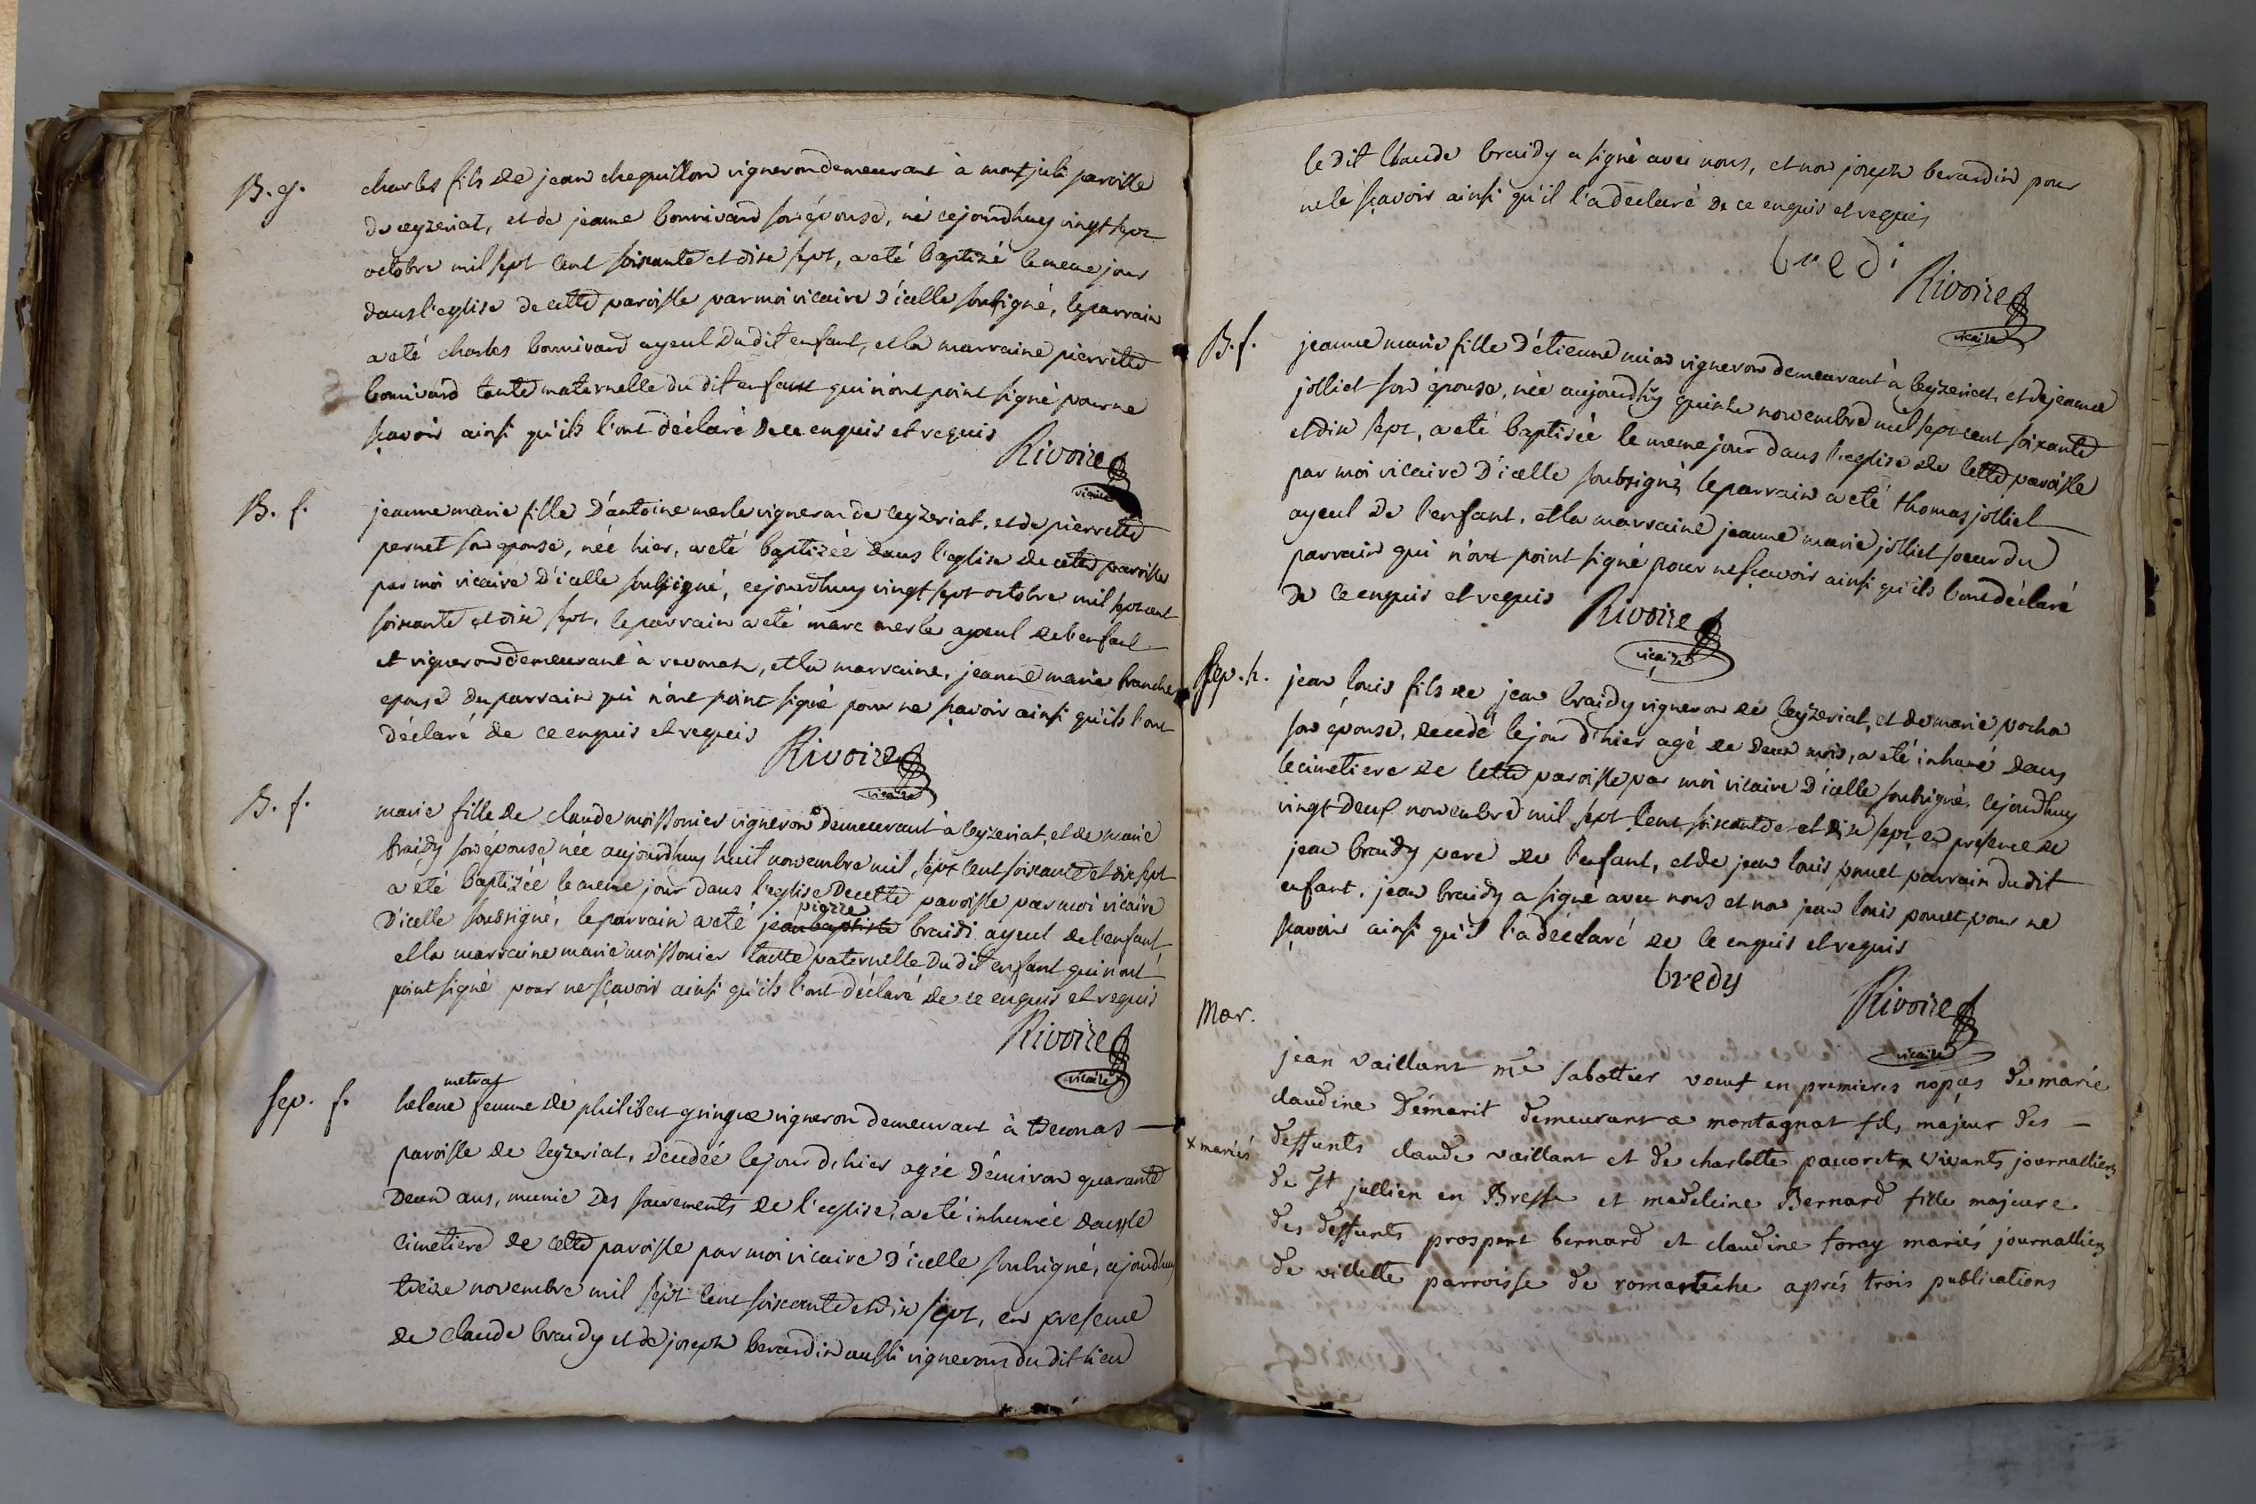 B. g.
charles fils de jean chequillon vigneron demeurant à mont july paroisse
de ceyzeriat, et de jeanne bonnivard son épouse, né cejourdhuy vingt sept
octobre mil sept cent soixante et dixe sept, a eté baptizé le meme jour
dans l'eglise de cette paroisse par moi vicaire d'icelle soussigné, le parrain
a eté charles bonnivard ayeul du dit enfant, et la marraine pierrette
bonnivard tante maternelle du dit enfant qui n'ont point signé pour ne
sçavoir ainsi qu'ils l'ont déclaré de ce enquis et requis
Rivoire
vicaire
B. f.
jeanne marie fille d'antoine merle vigneron de ceyzeriat, et de pierrette
pernet son epouse, née hier, a eté baptizéé dans l'eglise de cette paroisse
par moi vicaire d'icelle soussigné, cejourdhuy vingt sept octobre mil sept cent
soixante et dix sept, le parrain a eté marc merle ayeul de l'enfant
et vigneron demeurant à revonas, et la marraine, jeanne marie branche
epouse du parrain qui n'ont point signé pour ne sçavoir ainsi qu'ils l'ont
déclaré de ce enquis et requis
Rivoire
vicaire
B. f.
marie fille de claude moissonier vigneron demeurant à ceyzeriat, et de marie
braidy son épouse née aujourdhuy huit novembre mil sept cent soixante et dix sept
a eté baptizéé le meme jour dans l'eglise de cette paroisse par moi vicaire
pierre
d'icelle soussigné, le parrain a eté jean baptiste braidi ayeul de l'enfant
et la marraine marie moissonier tante paternelle du dit enfant qui n'ont
point signé pour ne sçavoir ainsi qu'ils l'ont déclaré de ce enquis et requis
Rivoire
vicaire
sep. f.
metras
helene femme de philibert gringoz vigneron demeurant à treconas
paroisse de ceyzeriat, décedéé le jour d'hier agée d'environ quarante
deux ans, munie des sacrements de l'eglise, a eté inhumée dans le
cimetiere de cette paroisse par moi vicaire d'icelle soussigné, cejourdhuy
treize novembre mil sept cent soixante et dix sept, en presence
de claude braidy et de joseph berardin aussi vignerons du dit lieu
le dit Claude braidy a signé avec nous, et non joseph berardin pour
ne le sçavoir ainsi qu'il l'a déclaré de ce enquis et requis
bredi
Rivoire
vicaire
B. f.
jeanne marie fille d'étienne mion vigneron demeurant à ceyzeriat, et de jeanne
jolliet son épouse, née aujourdhuy quinze novembre mil sept cent soixante
et dix sept, a eté baptiséé le meme jour dans l'eglise de cette paroisse
par moi vicaire d'icelle soubsigné, le parrain a eté thomas jolliet
ayeul de l'enfant, et la marraine jeanne marie jolliet soeur du
parrain qui n'ont point signé pour ne sçavoir ainsi qu'ils l'ont déclaré
de ce enquis et requis
Rivoire
vicaire
sep. h.
jean louis fils de jean braidy vigneron de ceyzeriat, et de marie pochon
son epouse, decedé le jour d'hier agé de deux mois, a eté inhumé dans
le cimetiere de cette paroisse par moi vicaire d'icelle soussigné, cejourdhuy
vingt deux novembre mil sept cent soixante et dix sept, en presence de
jean braidy pere de l'enfant, et de jean louis ponet parrain du dit
enfant, jean braidy a signé avec nous et non jean louis ponet pour ne
sçavoir ainsi qu'il l'a déclaré de ce enquis et requis
bredy
Rivoire
vicaire
Mar.
jean vaillant me sabottier voeuf en premieres nopces de marie
claudine démarit demeurant a montagnat fils majeur des
x mariés
deffunts claude vaillant et de charlotte pacoret x vivants journalliers
de st jullien en Bresse et madeleine Bernard fille majeure
des deffunts prospert bernard et claudine foray mariés journalliers
de villette parroisse de romanèche aprés trois publications